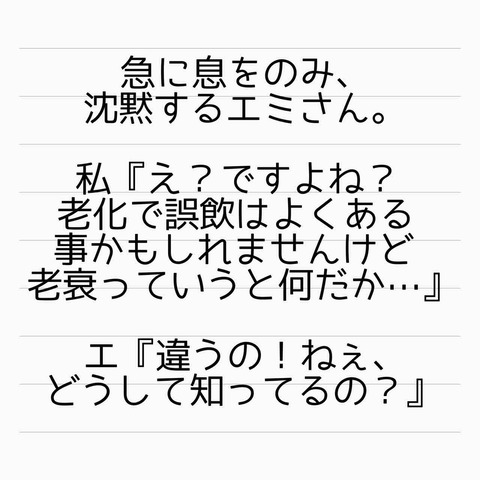 急に息をのみ、
沈黙するエミさん。
私『え？ですよね？
老化で誤飲はよくある
事かもしれませんけど
老衰っていうと何だか…』
エ『違うの！ねぇ、
どうして知ってるの？』